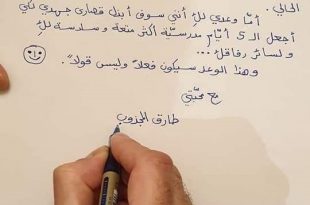 الحالي.
أمّا وعدي لكَ أنني سوف أبذل قصارى جهدي لكي
أجعل الـ 5 أيّام مدرسيّة أكثر متعة وسلاسة لكَ
ولسائر رفاقكَ...
وهذا الوعد سيكون فعلاً وليس قولاً.
مع محبّتي
طارق المجذوب